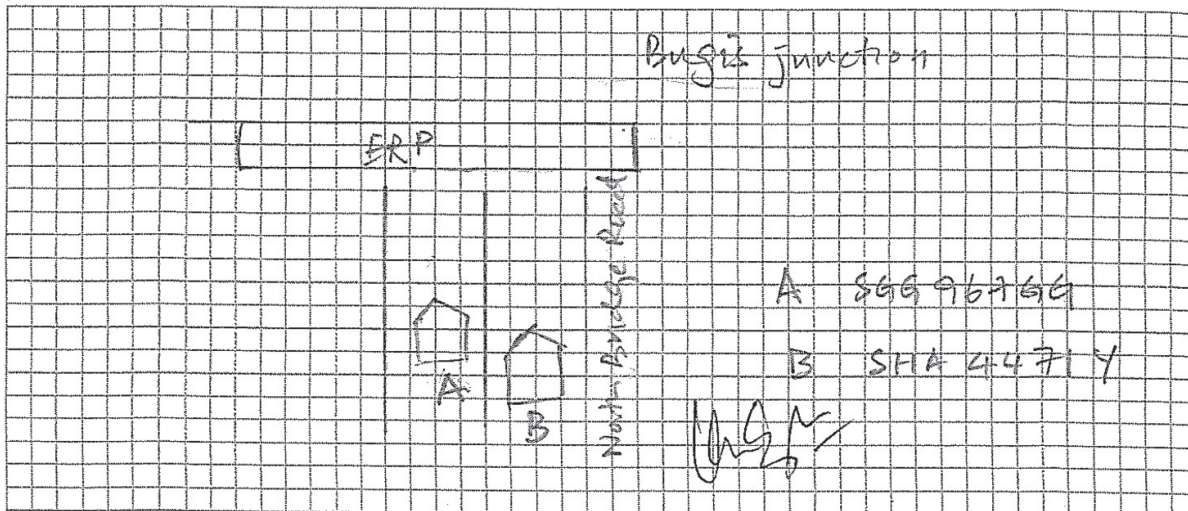 Bugis junction
ERP
North Bridge Road
A
B
A SGG 9676G
B SHA 4471Y